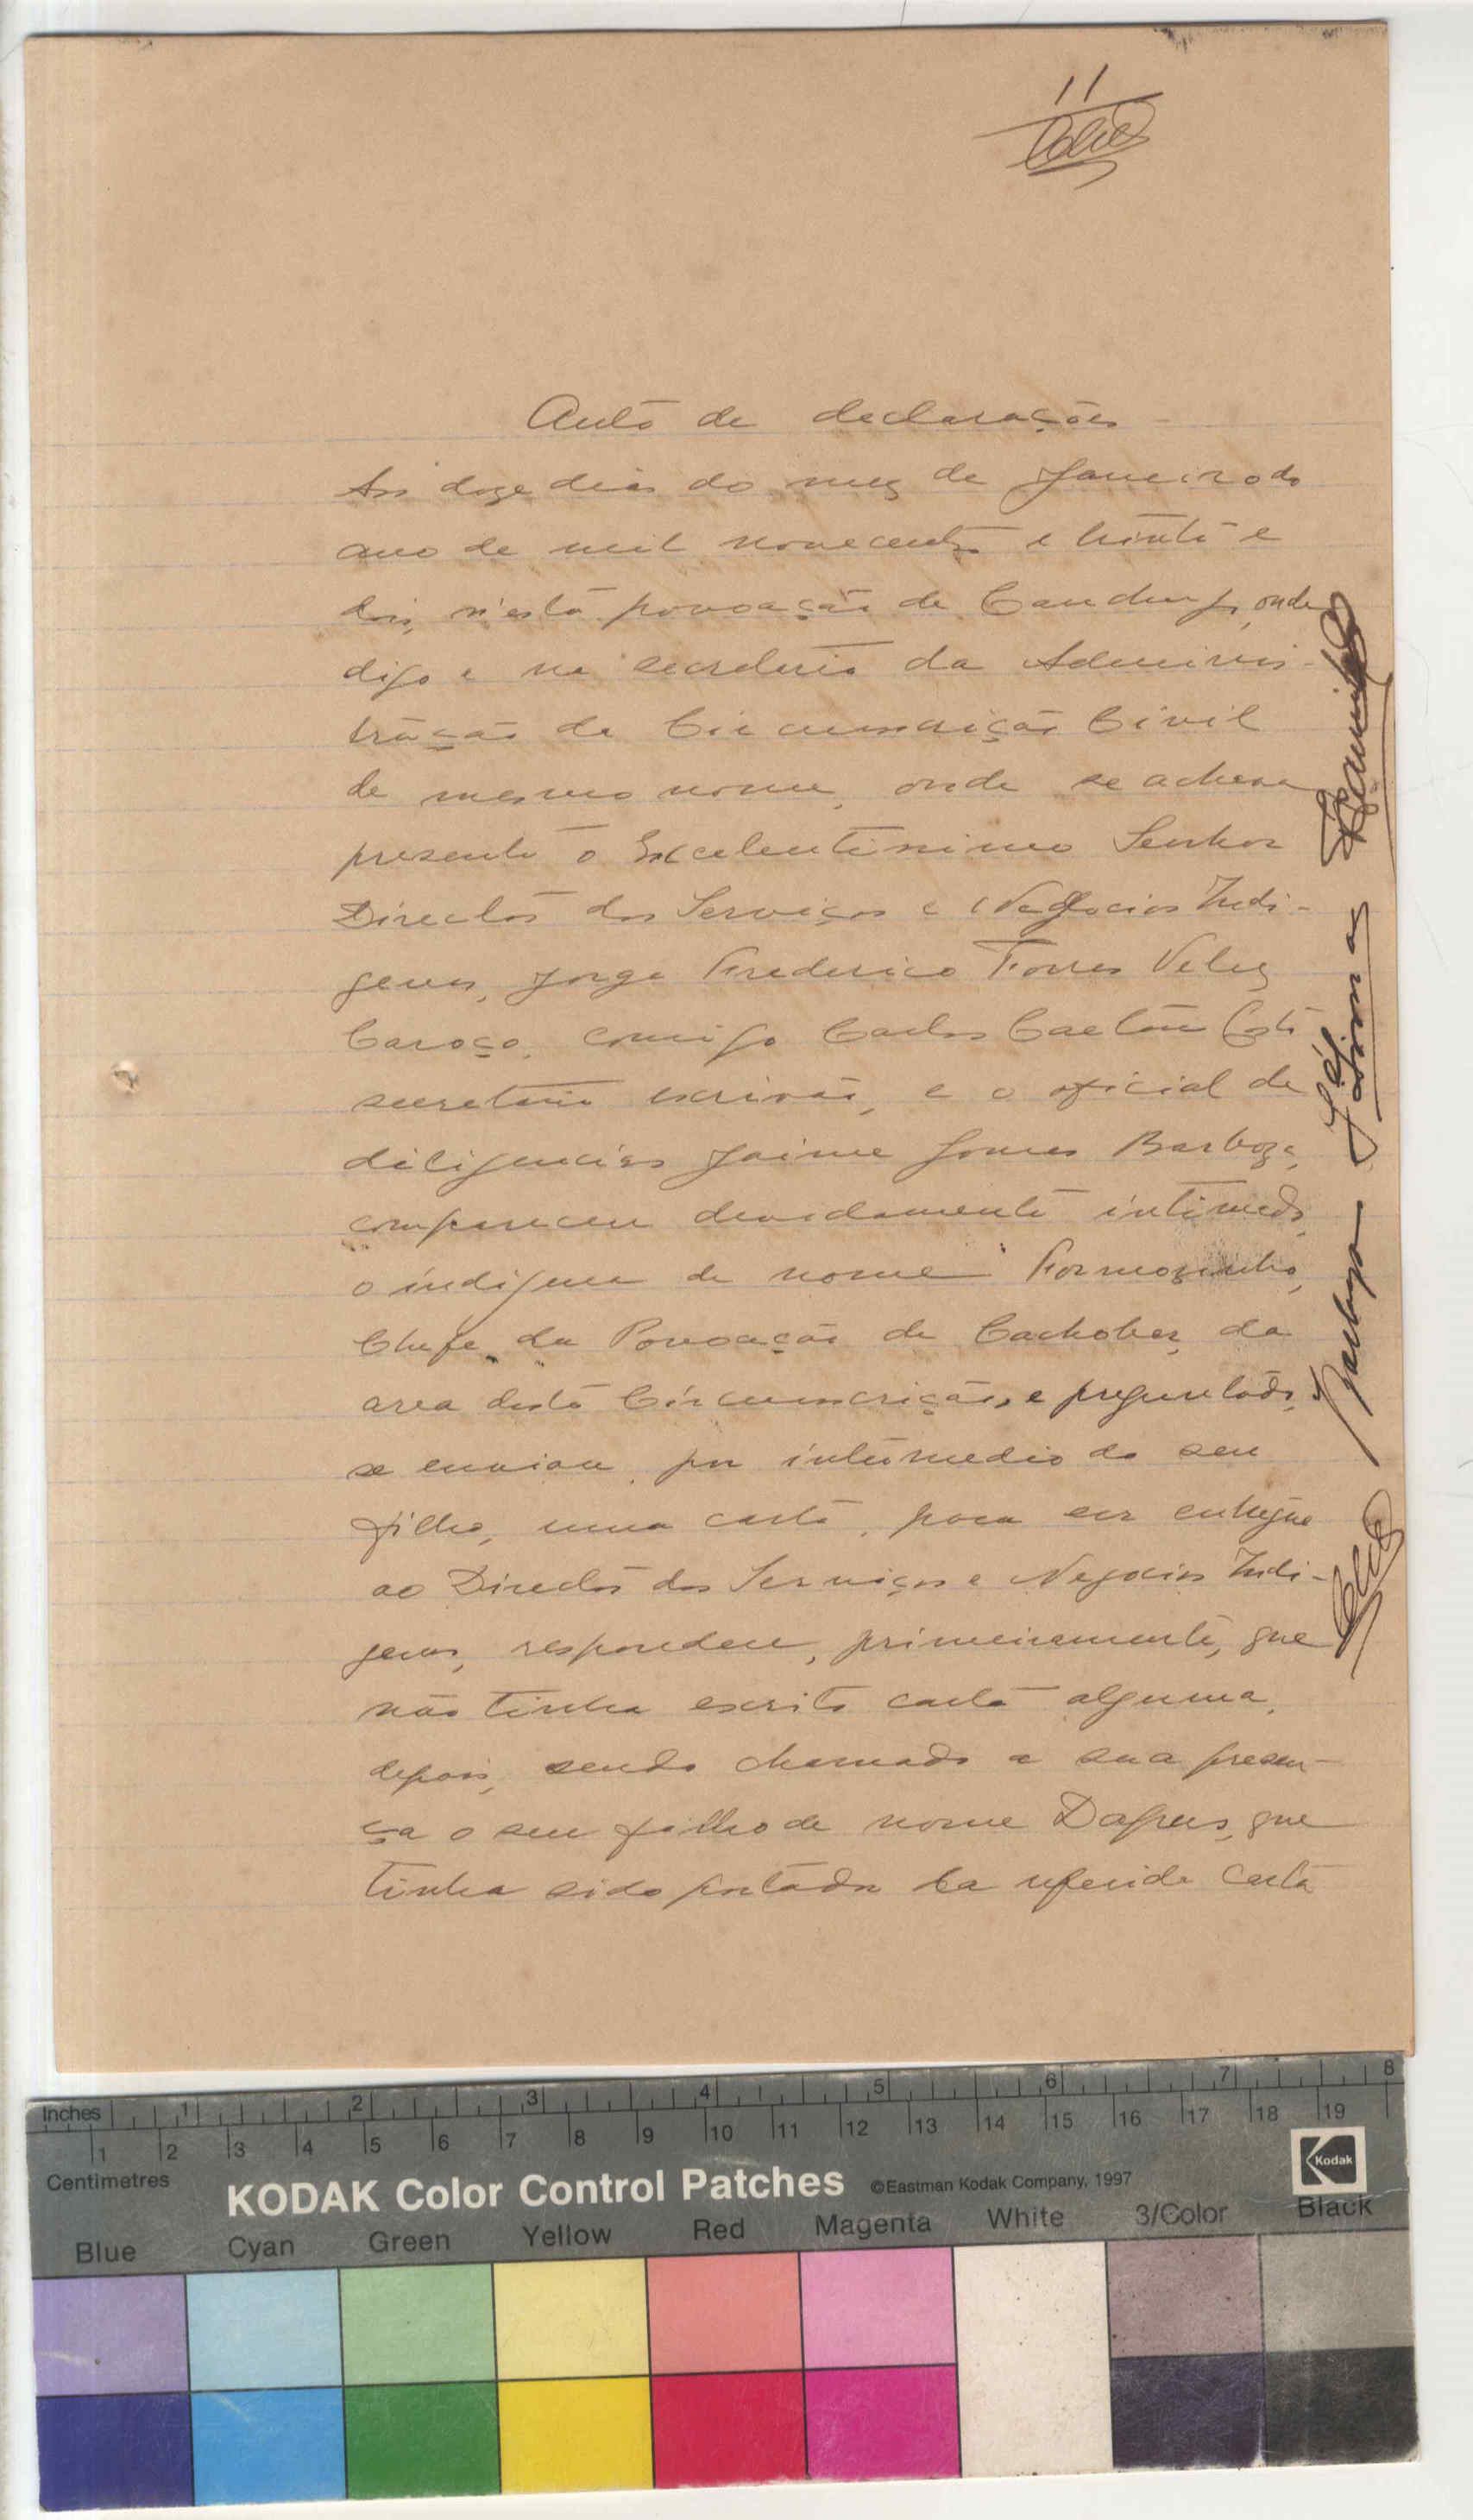 11
Auto de declarações
Aos doze dias do mez de Janeiro do
ano de mil novecentos e trinta e
dois, n'esta povoação de onde
digo e na secretaria da Adminis-
tração da Circunscrição Civil
do mesmo nome, onde se achava
presente o Excelentissimo Senhor
Director dos Serviços e Negocios Indi-
genas, Jorge Frederico Torres Velez
Caroço, comigo Carlos Caetano Costa
secretario escrivão, e o oficial de
diligencias Jaime Gomes Barboza,
compareceu devidamente intimado,
o indigena de nome Formozinho,
Chefe da Povoação de da
area desta Circunscrição, e preguntado,
se enviou por intermedio do seu
filho, uma carta, para ser entregue
ao Director dos Serviços e Negocios Indi-
genas, respondeu, primeiramente, que
não tinha escrito carta alguma,
depois, sendo chamado a sua presen-
ça o seu filho de nome que
tinha sido portador da referida carta